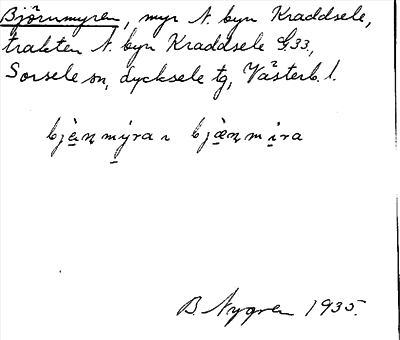 Björnmyren, myr N. byn Kraddsele,
trakten N. byn Kraddsele G33,
Sorsele sn, Lycksele tg, Västerb. l.
bjæ̀ɳmýra ı bjæ̀ɳmira
B. Nygren 1935.